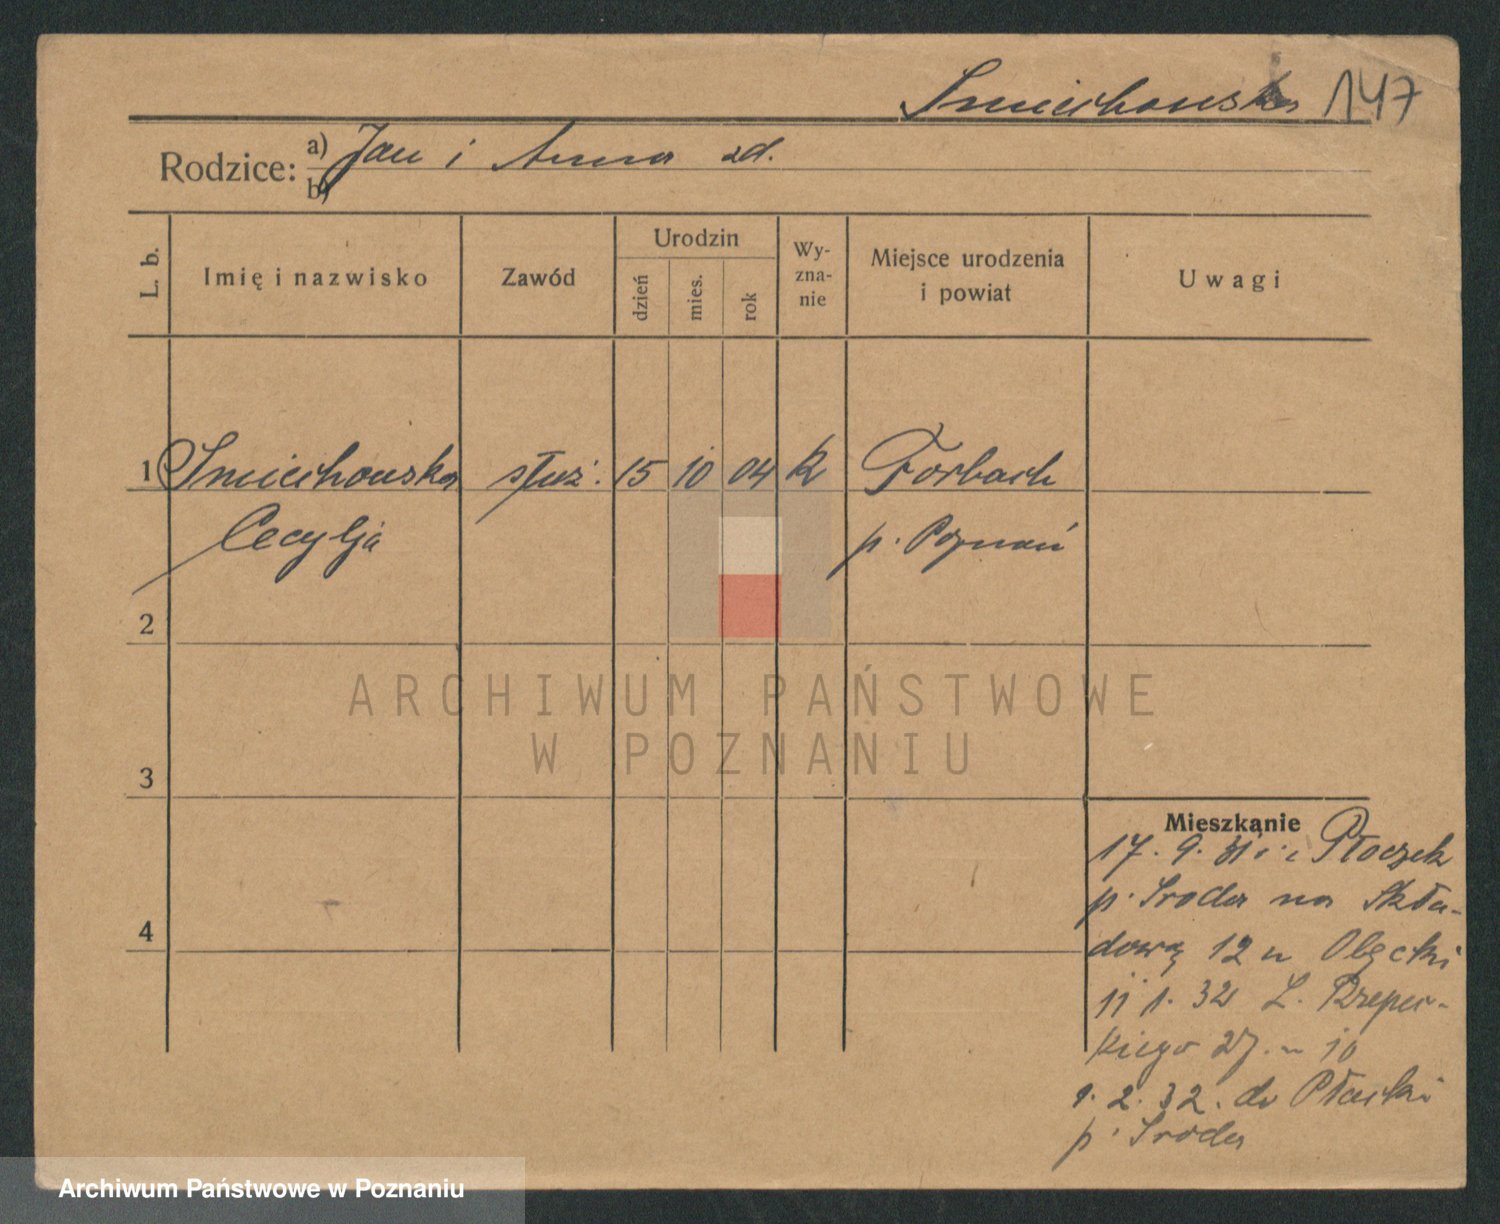 Smiechowska 147
Rodzice: a) Jan i Anna zd.
b)
L. b.
Imię i nazwisko
Zawód
Urodzin
dzień
mies.
rok
Wy-
zna-
nie
Miejsce urodzenia
i powiat
Uwagi
1 Smiechowska służ. 15 10 04 k Forbach
Cecylja p. Poznań
2
3
4
Mieszkanie
17. 9. 31 Płaczek
p. Sroda na Skła-
dową 12 u Olęcki
11 1. 32 L. Rzepec-
kiego 27. 10
9. 2. 32. do Płaczki
p. Sroda
ARCHIWUM PAŃSTWOWE
W POZNANIU
Archiwum Państwowe w Poznaniu